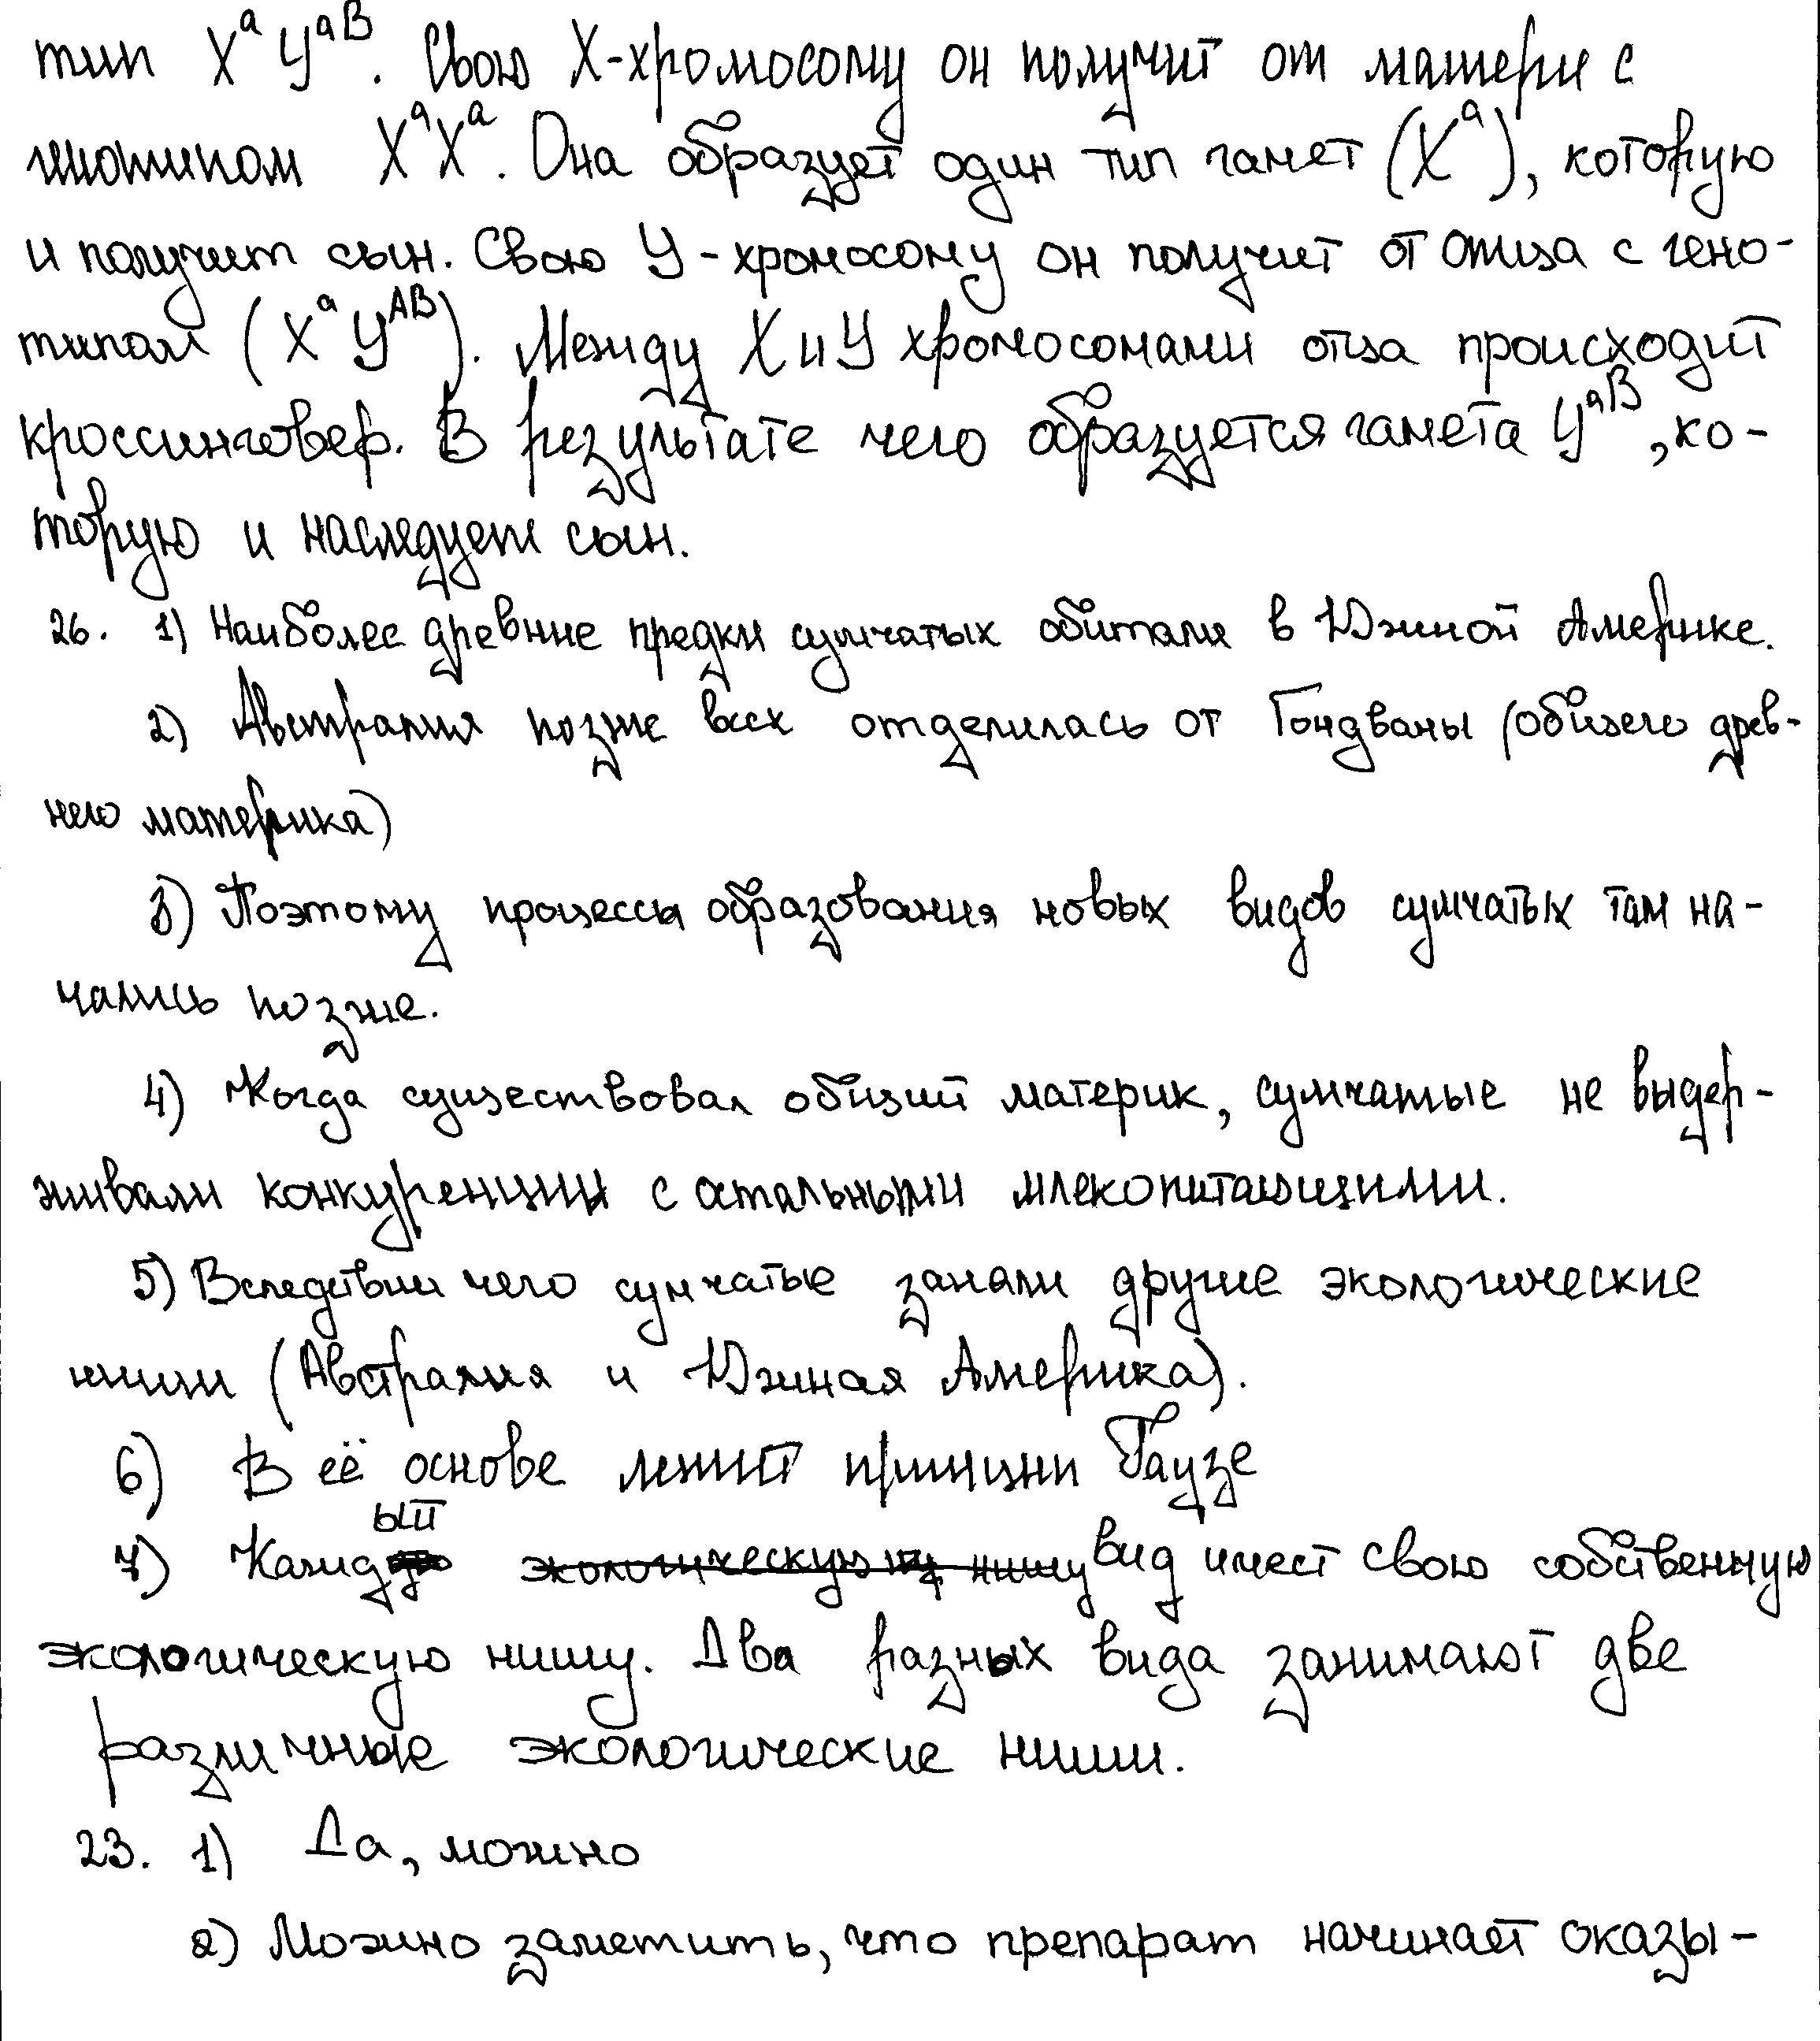 тип XᵃYᵃᴮ. Свою X-хромосому он получит от матери с
генотипом XᵃXᵃ. Она образует один тип гамет (Xᵃ), которую
и получит сын. Свою У-хромосому он получит от отца с гено-
типом (XᵃYᴬᴮ). Между X и У хромосомами отца происходит
кроссинговер. В результате чего образуется гамета Yᵃᴮ, ко-
торую и наследует сын.
26. 1) Наиболее древние предки сумчатых обитали в Южной Америке.
2) Австралия позже всех отделилась от Гондваны (общего древ-
него материка)
3) Поэтому процессы образования новых видов сумчатых там на-
чались позже.
4) Когда существовал общий материк, сумчатые не выдер-
живали конкуренции с остальными млекопитающими.
5) Вследствии чего сумчатые заняли другие экологические
ниши (Австралия и Южная Америка).
6) В её основе лежит принцип Гаузе
7) Каждый экологическую нишу вид имеет свою собственную
экологическую нишу. Два разных вида занимают две
различные экологические ниши.
23. 1) Да, можно
2) Можно заметить, что препарат начинает оказы-